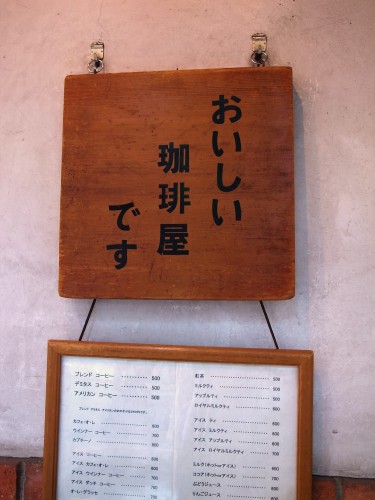 おいしい
珈琲屋
です
ブレンド コーヒー ………… 500
デミタス コーヒー ………… 500
アメリカン コーヒー ………… 500
カフェ・オ・レ ………… 600
ウインナー コーヒー ………… 600
カプチーノ ………… 700
アイス コーヒー ………… 600
アイス カフェ・オ・レ ………… 600
アイス ウインナー コーヒー ………… 700
紅茶 ………… 500
ミルクティ ………… 500
アップルティ ………… 500
ロイヤルミルクティ ………… 600
アイス ティ ………… 600
アイス ミルクティ ………… 600
アイス アップルティ ………… 600
アイス ロイヤルミルクティ ………… 700
ミルク(ホットorアイス) ………… 600
ココア(ホットorアイス) ………… 700
ぶどうジュース ………… 600
りんごジュース ………… 600